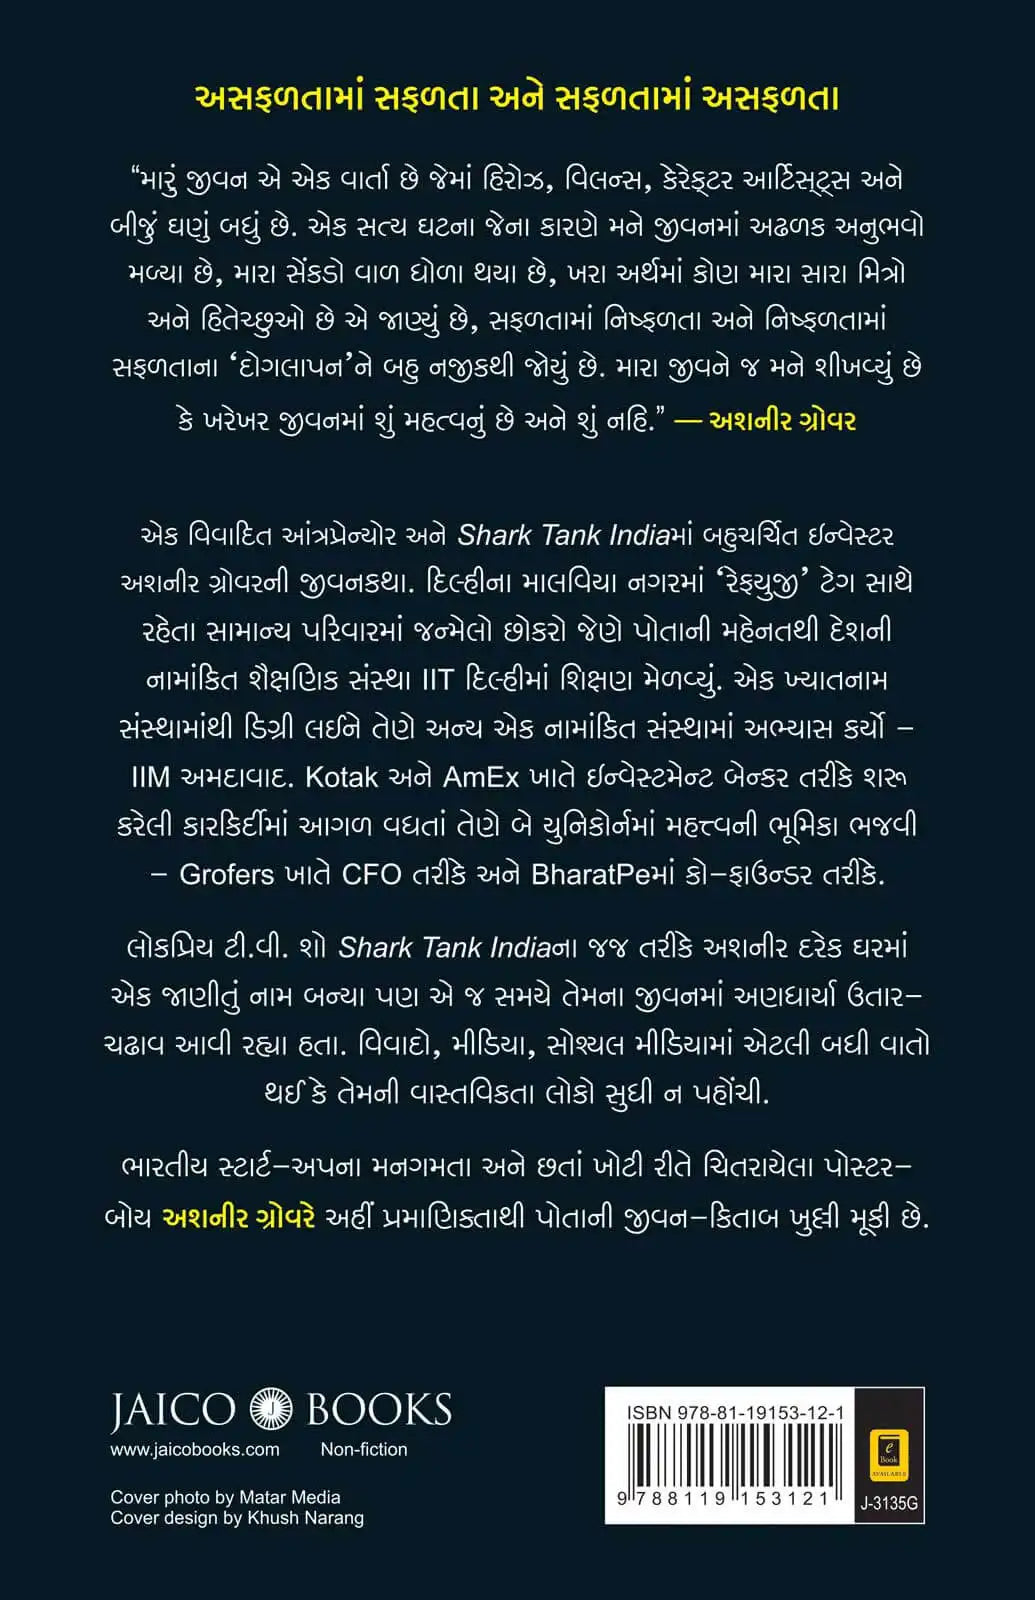 અસફળતામાં સફળતા અને સફળતામાં અસફળતા
“મારું જીવન એ એક વાર્તા છે જેમાં હિરોઝ, વિલન્સ, કેરેક્ટર આર્ટિસ્ટ્સ અને
બીજું ઘણું બધું છે. એક સત્ય ઘટના જેના કારણે મને જીવનમાં અઢળક અનુભવો
મળ્યા છે, મારા સેંકડો વાળ ધોળા થયા છે, ખરા અર્થમાં કોણ મારા સારા મિત્રો
અને હિતેચ્છુઓ છે એ જાણ્યું છે, સફળતામાં નિષ્ફળતા અને નિષ્ફળતામાં
સફળતાના ‘દોગલાપન’ને બહુ નજીકથી જોયું છે. મારા જીવને જ મને શીખવ્યું છે
કે ખરેખર જીવનમાં શું મહત્વનું છે અને શું નહિ.” — અશનીર ગ્રોવર
એક વિવાદિત આંત્રપ્રેન્યોર અને Shark Tank Indiaમાં બહુચર્ચિત ઇન્વેસ્ટર
અશનીર ગ્રોવરની જીવનકથા. દિલ્હીના માલવિયા નગરમાં ‘રેફયુજી’ ટેગ સાથે
રહેતા સામાન્ય પરિવારમાં જન્મેલો છોકરો જેણે પોતાની મહેનતથી દેશની
નામાંકિત શૈક્ષણિક સંસ્થા IIT દિલ્હીમાં શિક્ષણ મેળવ્યું. એક ખ્યાતનામ
સંસ્થામાંથી ડિગ્રી લઈને તેણે અન્ય એક નામાંકિત સંસ્થામાં અભ્યાસ કર્યો –
IIM અમદાવાદ. Kotak અને AmEx ખાતે ઇન્વેસ્ટમેન્ટ બેન્કર તરીકે શરૂ
કરેલી કારકિર્દીમાં આગળ વધતાં તેણે બે યુનિકોર્નમાં મહત્ત્વની ભૂમિકા ભજવી
– Grofers ખાતે CFO તરીકે અને BharatPeમાં કો-ફાઉન્ડર તરીકે.
લોકપ્રિય ટી.વી. શો Shark Tank Indiaના જજ તરીકે અશનીર દરેક ઘરમાં
એક જાણીતું નામ બન્યા પણ એ જ સમયે તેમના જીવનમાં અણધાર્યા ઉતાર-
ચઢાવ આવી રહ્યા હતા. વિવાદો, મીડિયા, સોશ્યલ મીડિયામાં એટલી બધી વાતો
થઈ કે તેમની વાસ્તવિકતા લોકો સુધી ન પહોંચી.
ભારતીય સ્ટાર્ટ-અપના મનગમતા અને છતાં ખોટી રીતે ચિતરાયેલા પોસ્ટર-
બોય અશનીર ગ્રોવરે અહીં પ્રમાણિક્તાથી પોતાની જીવન-કિતાબ ખુલ્લી મૂકી છે.
JAICO J BOOKS
www.jaicobooks.com Non-fiction
Cover photo by Matar Media
Cover design by Khush Narang
ISBN 978-81-19153-12-1
9 788119 153121
e
Book
AVAILABLE
J-3135G